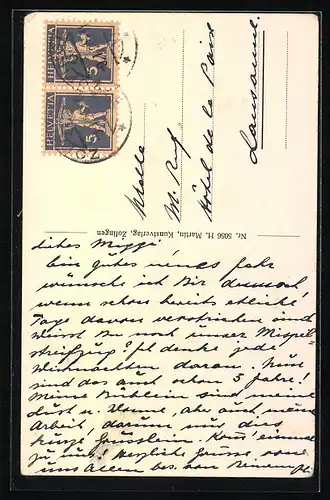 HELVETIA 5
HELVETIA 5
M. Ruf
Hôtel de la Paix
Lausanne.
Nr. 5056 H. Martin, Kunstverlag, Zofingen
Liebes Mirggi
Ein gutes neues Jahr
wünsche ich Dir dennoch
wenn schon bereits etliche
Tage davon verstrichen sind
Weisst Du noch unser Mispel-
streifzug? Ich denke jede
Weihnachten daran. Nun
sind das auch schon 3 Jahre!
Meine Büblein sind meine
Lust u. Wonne, aber auch meine
Arbeit, darum nur dies
kurze Grüsslein. Komm einmal
zu uns! Herzliche Grüsse, von
uns Allen bes. von